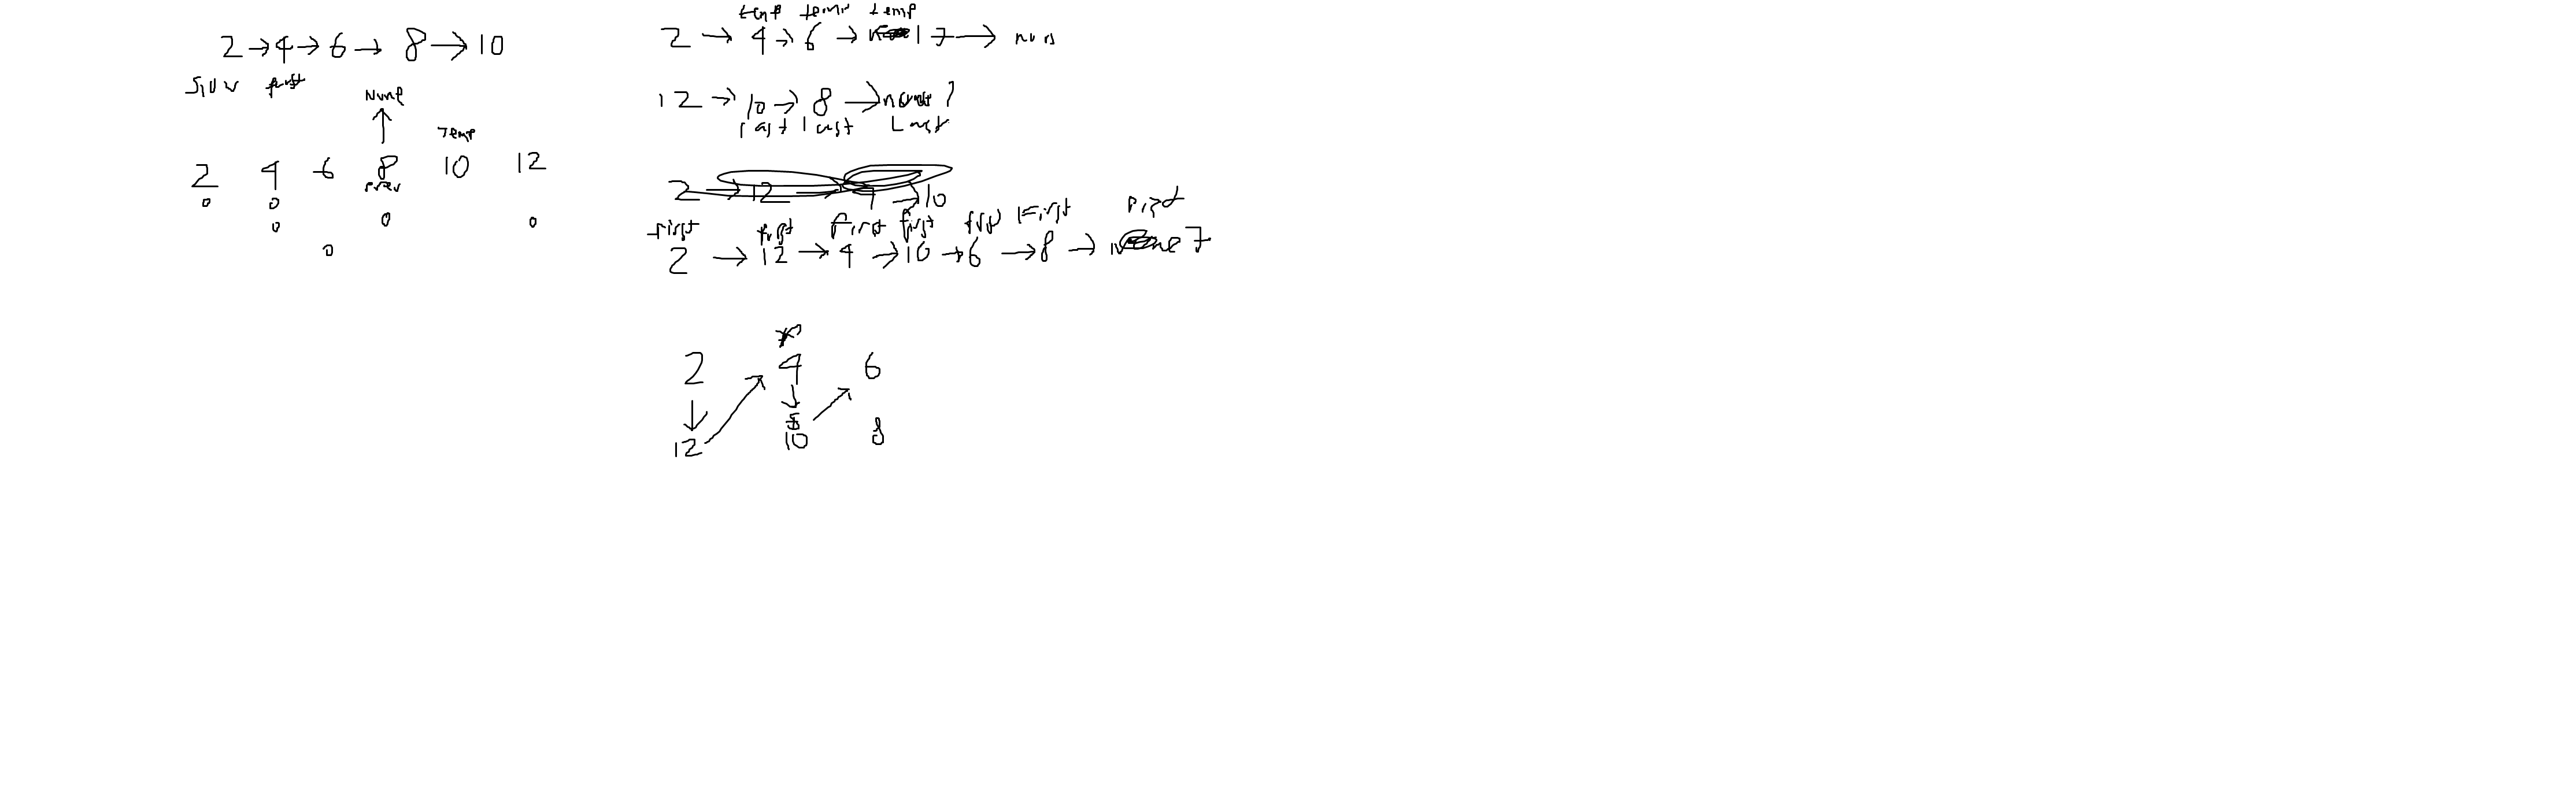 2 → 4 → 6 → 8 → 10
slow fast
None
Temp
2 4 6 8 10 12
prev
0 0
0 0 0
0
temp temp temp
2 → 4 → 6 → 7 →
12 → 10 → 8 →
last last Last
2 → 12 → 4 → 10
first first first first first First
2 → 12 → 4 → 10 → 6 → 8 → 7
2 4 6
12 10 8